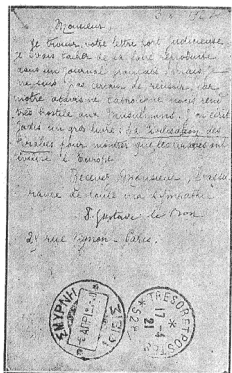 Monsieur,
Je trouve votre lettre fort judicieuse
je vais tacher de la faire
dans un journal français mais je
ne suis pas certain de réussir, car
notre catholique nous rend
très hostile aux musulmans. J'ai écrit
jadis un gros livre: La civilisation des
Arabes pour montrer que les arabes ont
l'Europe.
Recevez Monsieur,
rance de toute ma sympathie
Dr Gustave le Bon
29 rue Vignon - Paris.
ΣΜΥΡΝΗ
TRESOR ET POSTES
17-4
21
* 528 *